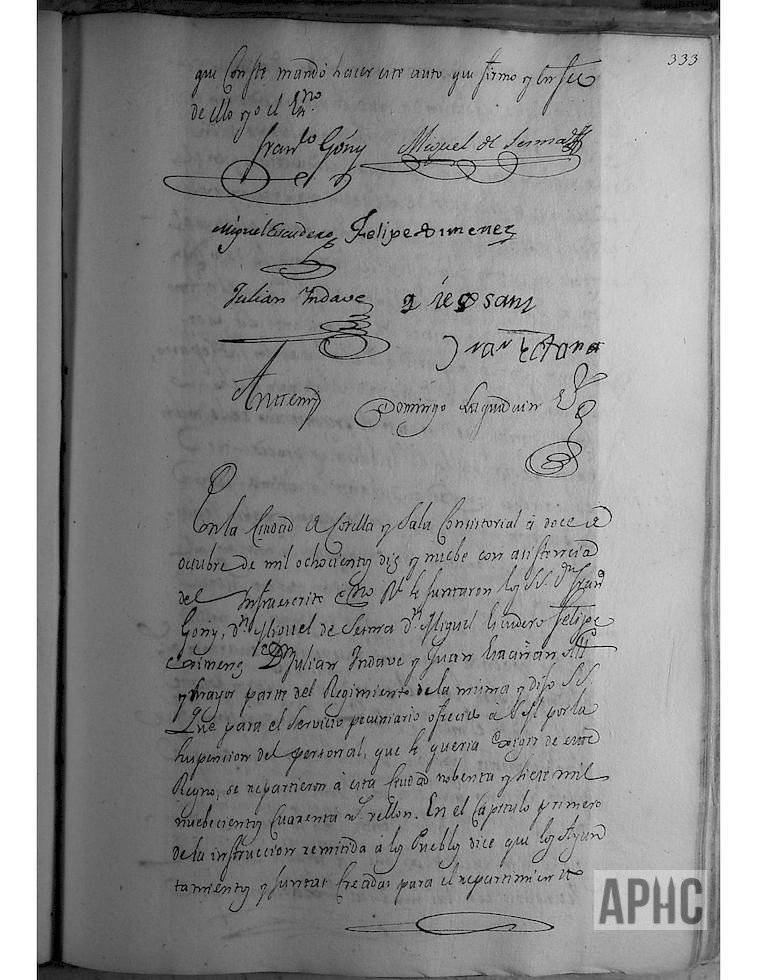 333
que conste mandó hacer este auto, que firmo y en fee
de ello yo el Essno
Franco Góñy Miguel de Sesma
Miguel Escudero Felipe Ximenez
Julian Yndave Diego Sanz
Juan
Antemi Domingo Laquidain
En la Ciudad de Corella y Sala Consistorial á doce de
octubre de mil ochocientos diz y nuebe con asistencia
del Infraescrito Essno Rl. se juntaron los SS. Dn Franco
Goñy, Dn Miguel de Sesma Dn Miguel Escudero Felipe
Ximenz Dn Julian Indave y Juan
y mayor parte del Regimiento de la misma y dijo SS.
Que para el Servicio pecuniario ofrecido á S.M. por la
suspension del personal, que se queria exigir de este
Reyno, se repartieron á esta Ciudad nobenta y siete mil
nuebecientos Cuarenta rs vellon. En el Capitulo primero
de la instruccion remitida á los Pueblos dice que los Ayun
tamientos y Juntas creadas para el repartimiento
APHC